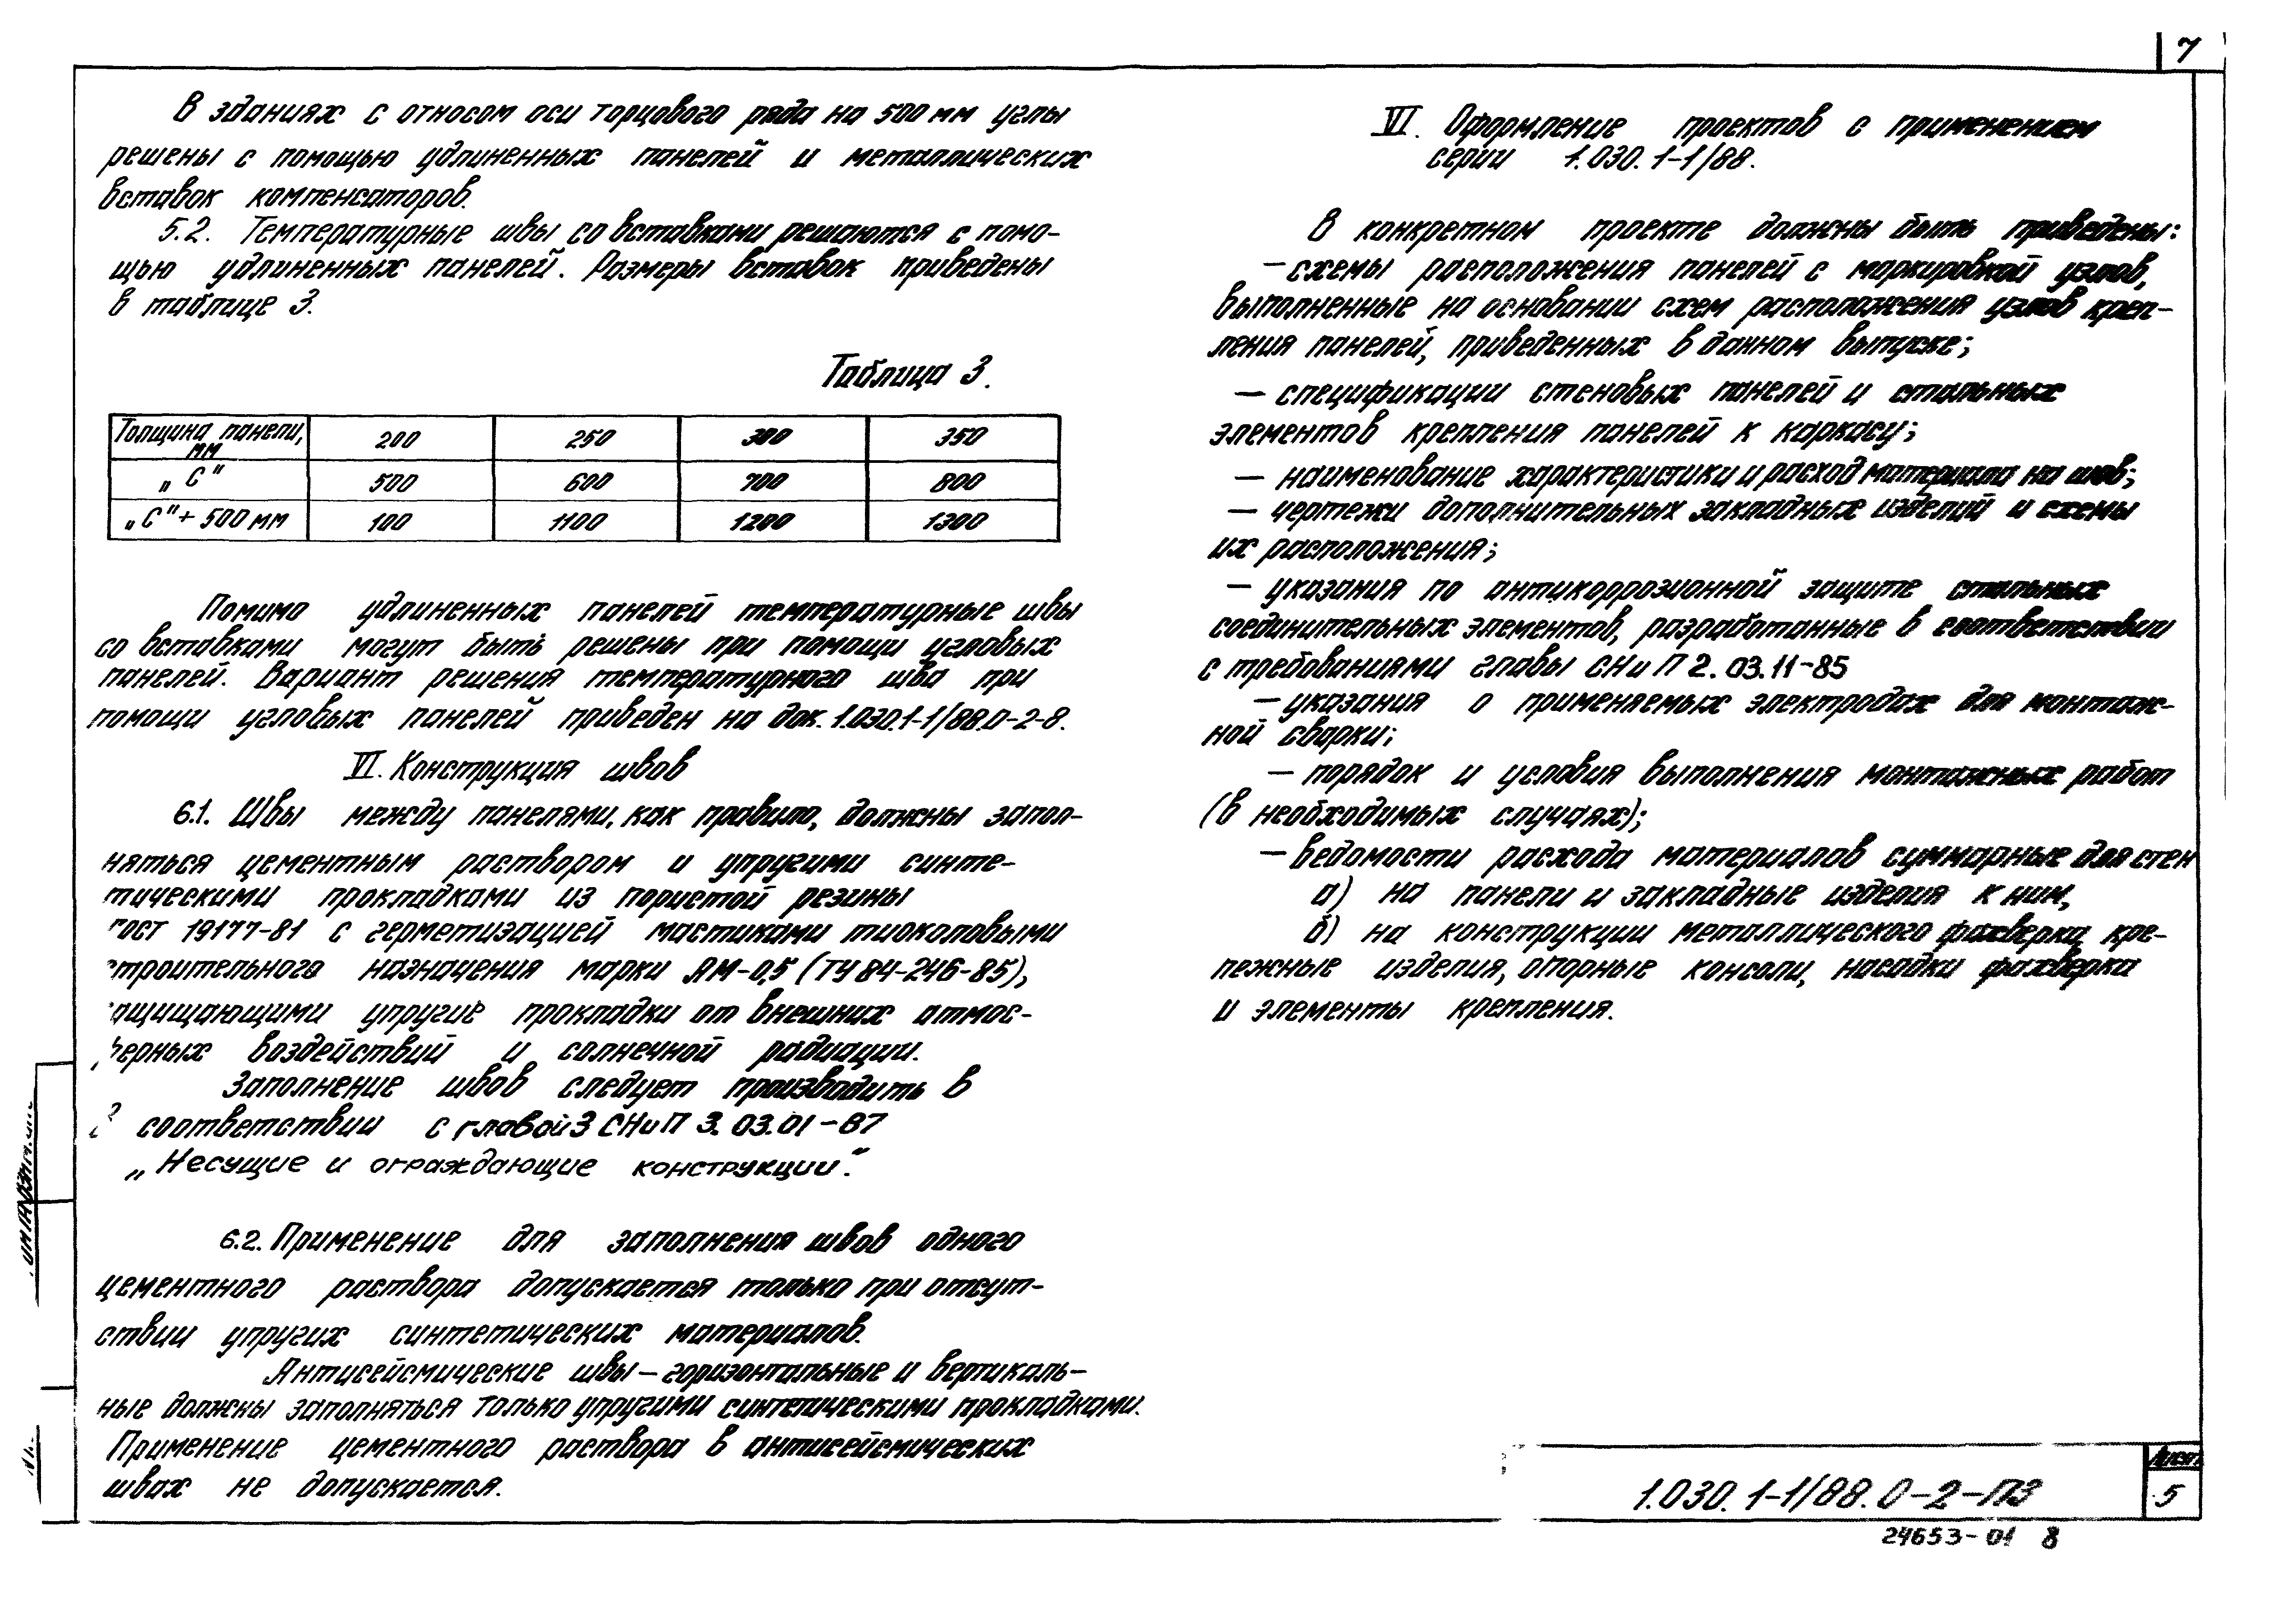 7
В зданиях с относом оси торцового ряда на 500 мм углы
решены с помощью удлиненных панелей и металлических
вставок компенсаторов.
5.2. Температурные швы со вставками решаются с помо-
щью удлиненных панелей. Размеры вставок приведены
в таблице 3.
Таблица 3.
Толщина панели, мм 200 250 300 350
„С" 500 600 700 800
„С"+ 500 мм 100 1100 1200 1300
Помимо удлиненных панелей температурные швы
со вставками могут быть решены при помощи угловых
панелей. Вариант решения температурного шва при
помощи угловых панелей приведен на док. 1.030.1-1/88.0-2-8.
VI. Конструкция швов
6.1. Швы между панелями, как правило, должны запол-
няться цементным раствором и упругими синте-
тическими прокладками из пористой резины
гост 19177-81 с герметизацией мастиками тиоколовыми
строительного назначения марки АМ-0,5 (ТУ 84-246-85),
защищающими упругие прокладки от внешних атмос-
ферных воздействий и солнечной радиации.
Заполнение швов следует производить в
соответствии с главой 3 СНиП 3.03.01-87
„Несущие и ограждающие конструкции".
6.2. Применение для заполнения швов одного
цементного раствора допускается только при отсут-
ствии упругих синтетических материалов.
Антисейсмические швы - горизонтальные и вертикаль-
ные должны заполняться только упругими синтетическими прокладками.
Применение цементного раствора в антисейсмических
швах не допускается.
VI. Оформление проектов с применением
серии 1.030.1-1/88.
В конкретном проекте должны быть приведены:
- схемы расположения панелей с маркировкой узлов,
выполненные на основании схем расположения узлов креп-
ления панелей, приведенных в данном выпуске;
- спецификации стеновых панелей и стальных
элементов крепления панелей к каркасу;
- наименование характеристики и расход материала на шов;
- чертежи дополнительных закладных изделий и схемы
их расположения;
- указания по антикоррозионной защите стальных
соединительных элементов, разработанные в соответствии
с требованиями главы СНиП 2.03.11-85
- указания о применяемых электродах для монтаж-
ной сварки;
- порядок и условия выполнения монтажных работ
(в необходимых случаях);
- ведомости расхода материалов суммарные для стен
а) на панели и закладные изделия к ним,
б) на конструкции металлического фахверка, кре-
пежные изделия, опорные консоли, насадки фахверка
и элементы крепления.
1.030.1-1/88.0-2-ПЗ
Лист
5
24653-01 8